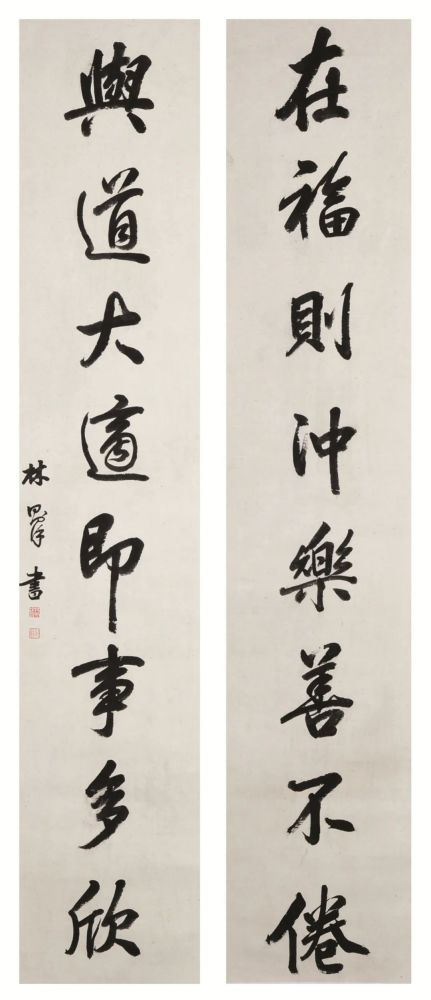 在福則沖樂善不倦
與道大適即事多欣
林 書